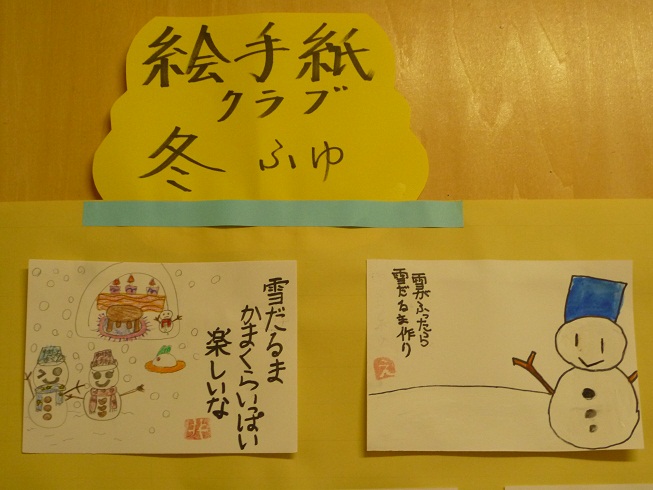 絵手紙
クラブ
冬 ふゆ
雪だるま
かまくらいっぱい
楽しいな
雪がふったら
雪だるま作り
え